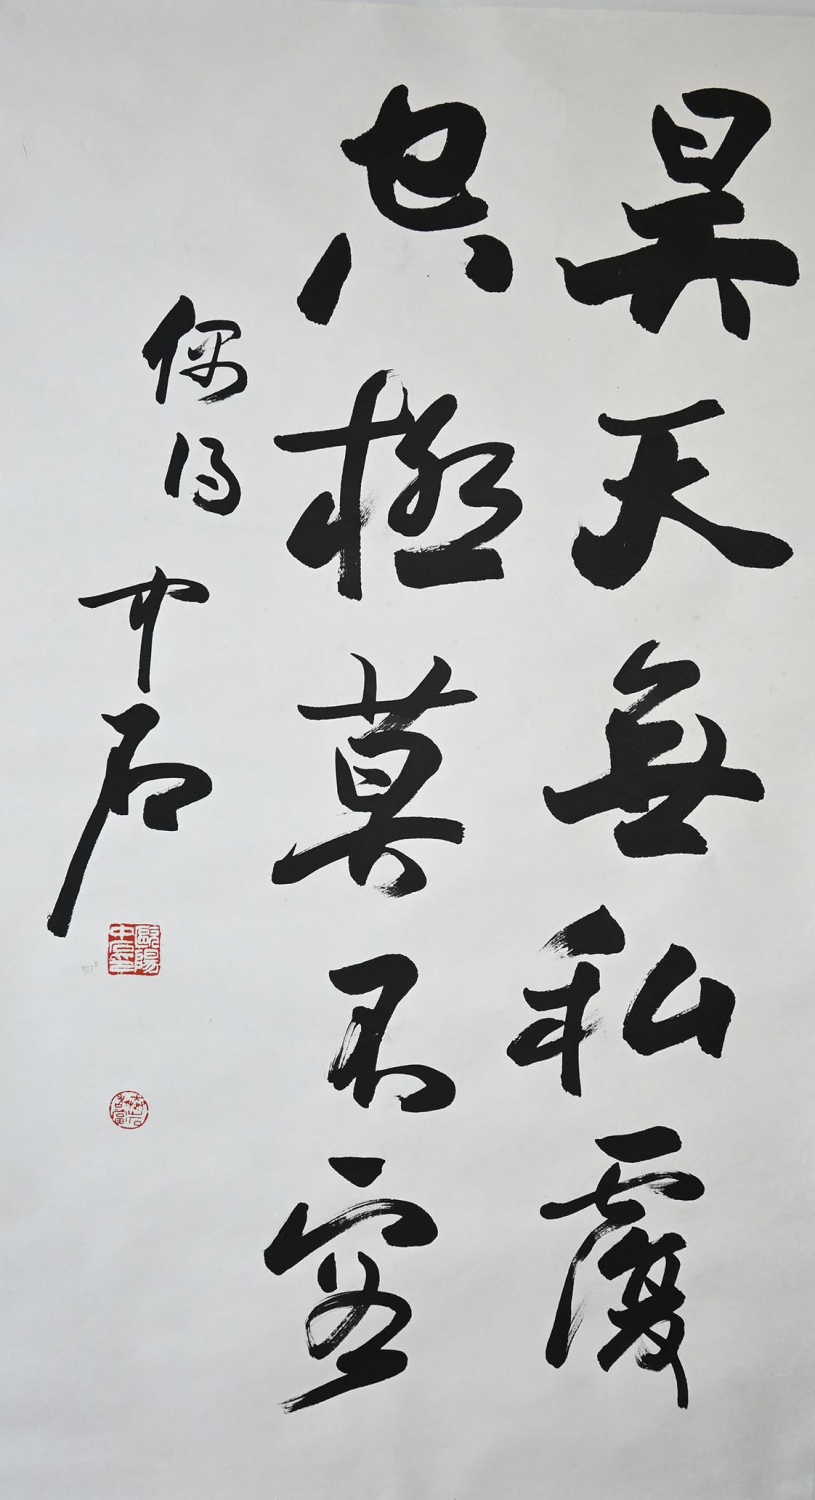 昊天無私覆
極莫不容
偶得
中石
歐陽中石